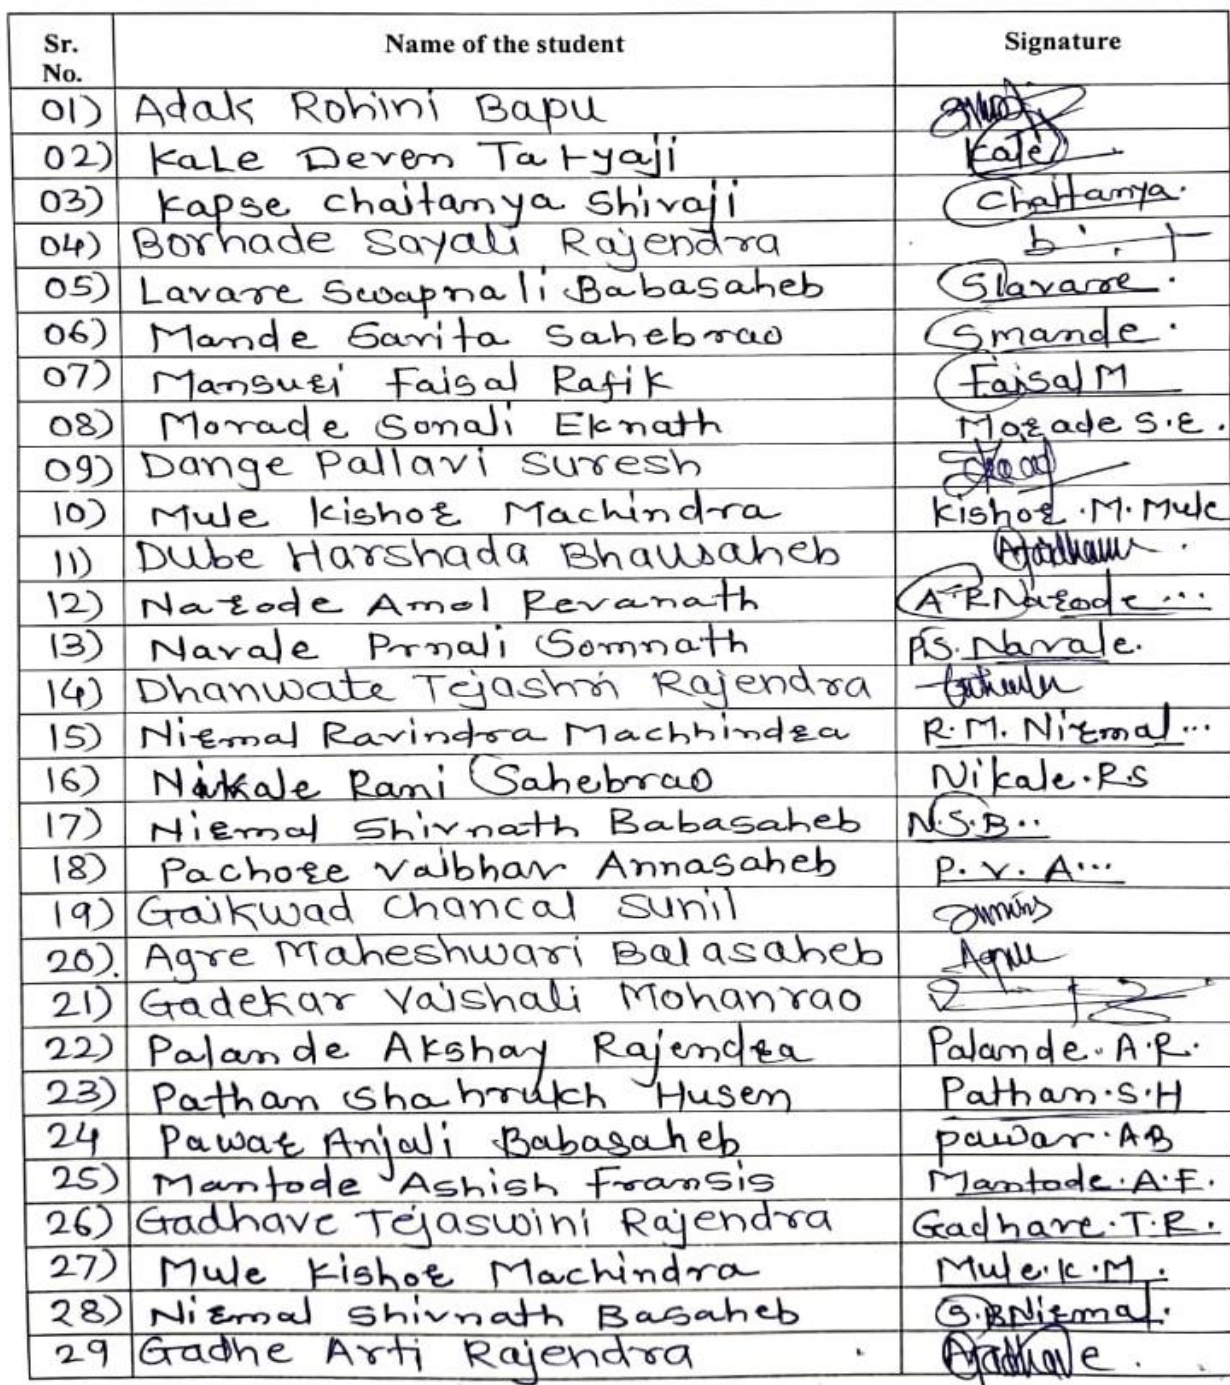 Sr. No. Name of the student Signature
01) Adak Rohini Bapu
02) Kale Deven Tatyaji Kale
03) Kapse Chaitanya Shivaji Chaitanya.
04) Borhade Sayali Rajendra
05) Lavare Swapnali Babasaheb Slavare.
06) Mande Sarita Sahebrao Smande.
07) Mansuri Faisal Rafik Faisal M
08) Morade Sonali Eknath Morade S.E.
09) Dange Pallavi Suresh
10) Mule Kishor Machindra Kishor.M.Mule
11) Dube Harshada Bhausaheb
12) Narode Amol Revanath A.R Narode...
13) Navale Prnali Somnath P.S. Navale.
14) Dhanwate Tejashri Rajendra
15) Nirmal Ravindra Machhindra R.M. Nirmal...
16) Nikale Rani Sahebrao Nikale.R.S
17) Nirmal Shivnath Babasaheb N.S.B..
18) Pachore Vaibhav Annasaheb P. V. A...
19) Gaikwad Chancal Sunil
20). Agre Maheshwari Balasaheb
21) Gadekar Vaishali Mohanrao
22) Palande Akshay Rajendra Palande.A.R.
23) Pathan Shahrukh Husen Pathan.S.H
24 Pawar Anjali Babasaheb pawar.AB
25) Mantode Ashish Fransis Mantode.A.F.
26) Gadhave Tejaswini Rajendra Gadhave.T.R.
27) Mule Kishor Machindra Mule.K.M.
28) Nirmal Shivnath Basaheb S.B Nirmal.
29 Gadhe Arti Rajendra